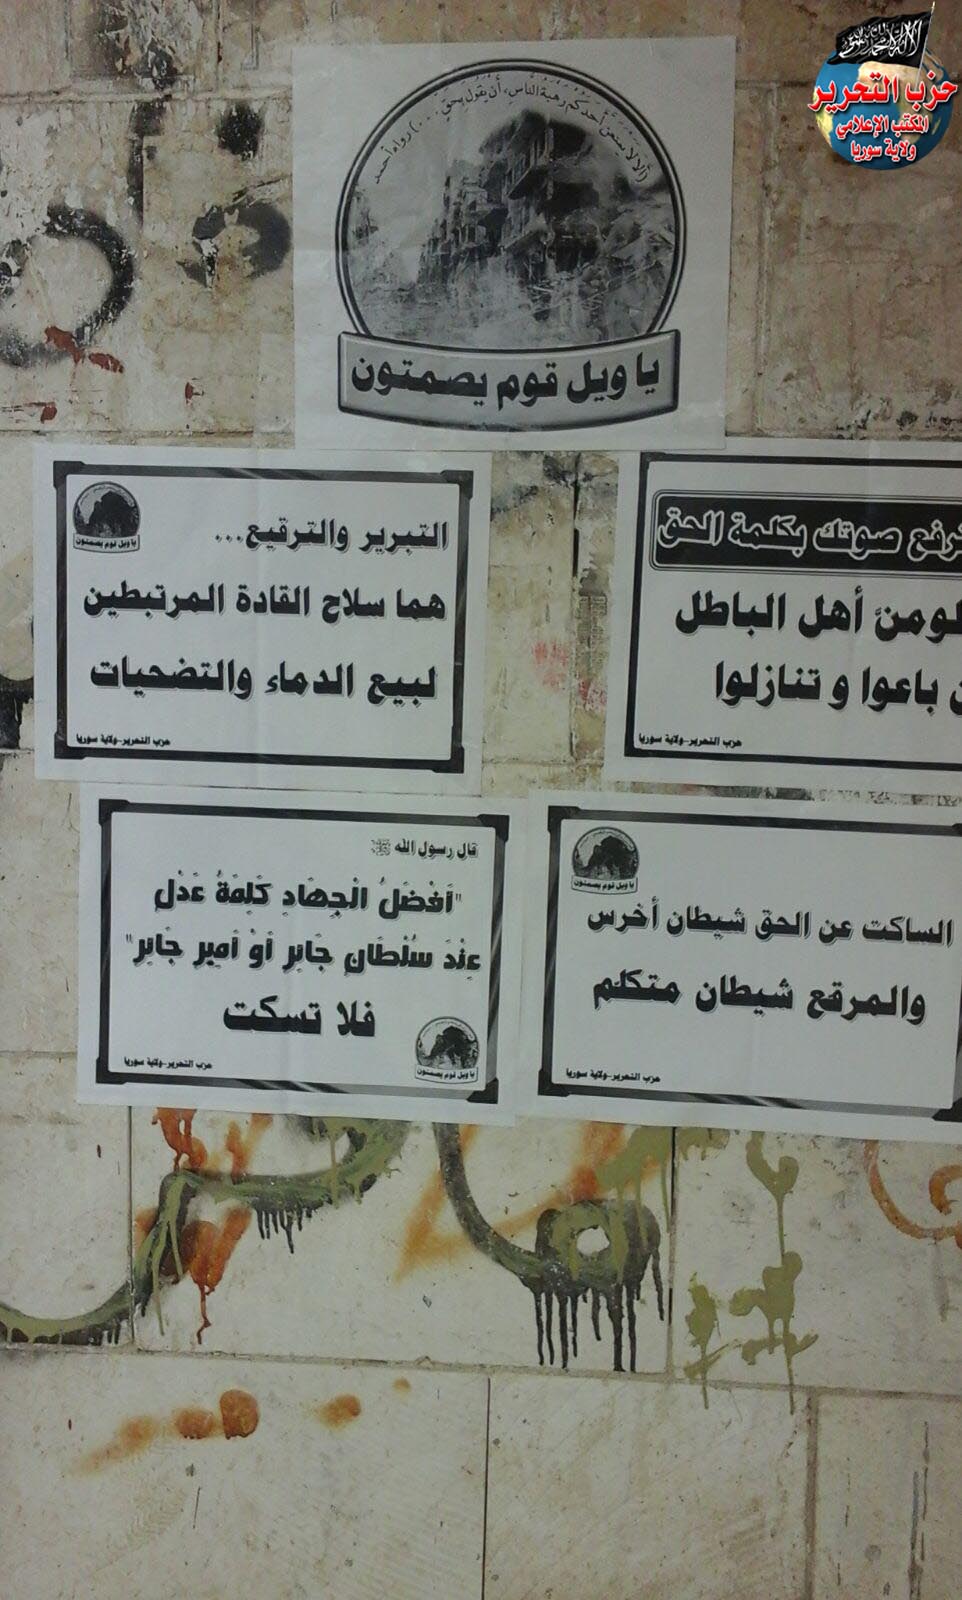 حزب التحرير
المكتب الإعلامي
ولاية سوريا
(ألا لا يمنعن أحدكم رهبة الناس، أن يقول بحق ....) رواه أحمد
يا ويل قوم يصمتون
يا ويل قوم يصمتون
التبرير والترقيع...
هما سلاح القادة المرتبطين
لبيع الدماء والتضحيات
حزب التحرير-ولاية سوريا
صوتك بكلمة الحق
أهل الباطل
باعوا و تنازلوا
حزب التحرير-ولاية سوريا
قال رسول الله ﷺ
"أَفْضَلُ الْجِهَادِ كَلِمَةُ عَدْلٍ
عِنْدَ سُلْطَانٍ جَائِرٍ أَوْ أَمِيرٍ جَائِرٍ"
فلا تسكت
يا ويل قوم يصمتون
حزب التحرير-ولاية سوريا
يا ويل قوم يصمتون
الساكت عن الحق شيطان أخرس
والمرقع شيطان متكلم
حزب التحرير-ولاية سوريا